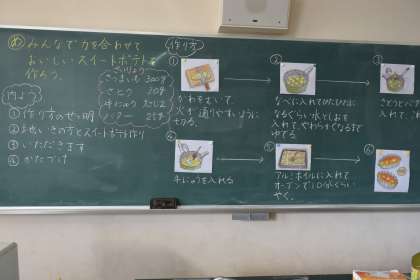 め みんなで力を合わせて
おいしいスイートポテトを
作ろう。
ざいりょう
さつまいも 300g
さとう 30g
牛にゅう 大さじ2
バター 25g
内よう
① 作り方のせつ明
② 地いきの方とスイートポテト作り
③ いただきます
④ かたづけ
作り方
①
かわをむいて、
火が通りやすいように
切る。
②
なべに入れてひたひたに
なるくらい水としおを
入れて、やわらかくなるまで
ゆでる。
③
さとうとバ
入れて、
④
牛にゅうを入れる
⑤
アルミホイルに入れて
オーブンで10分くらい
やく。
⑥